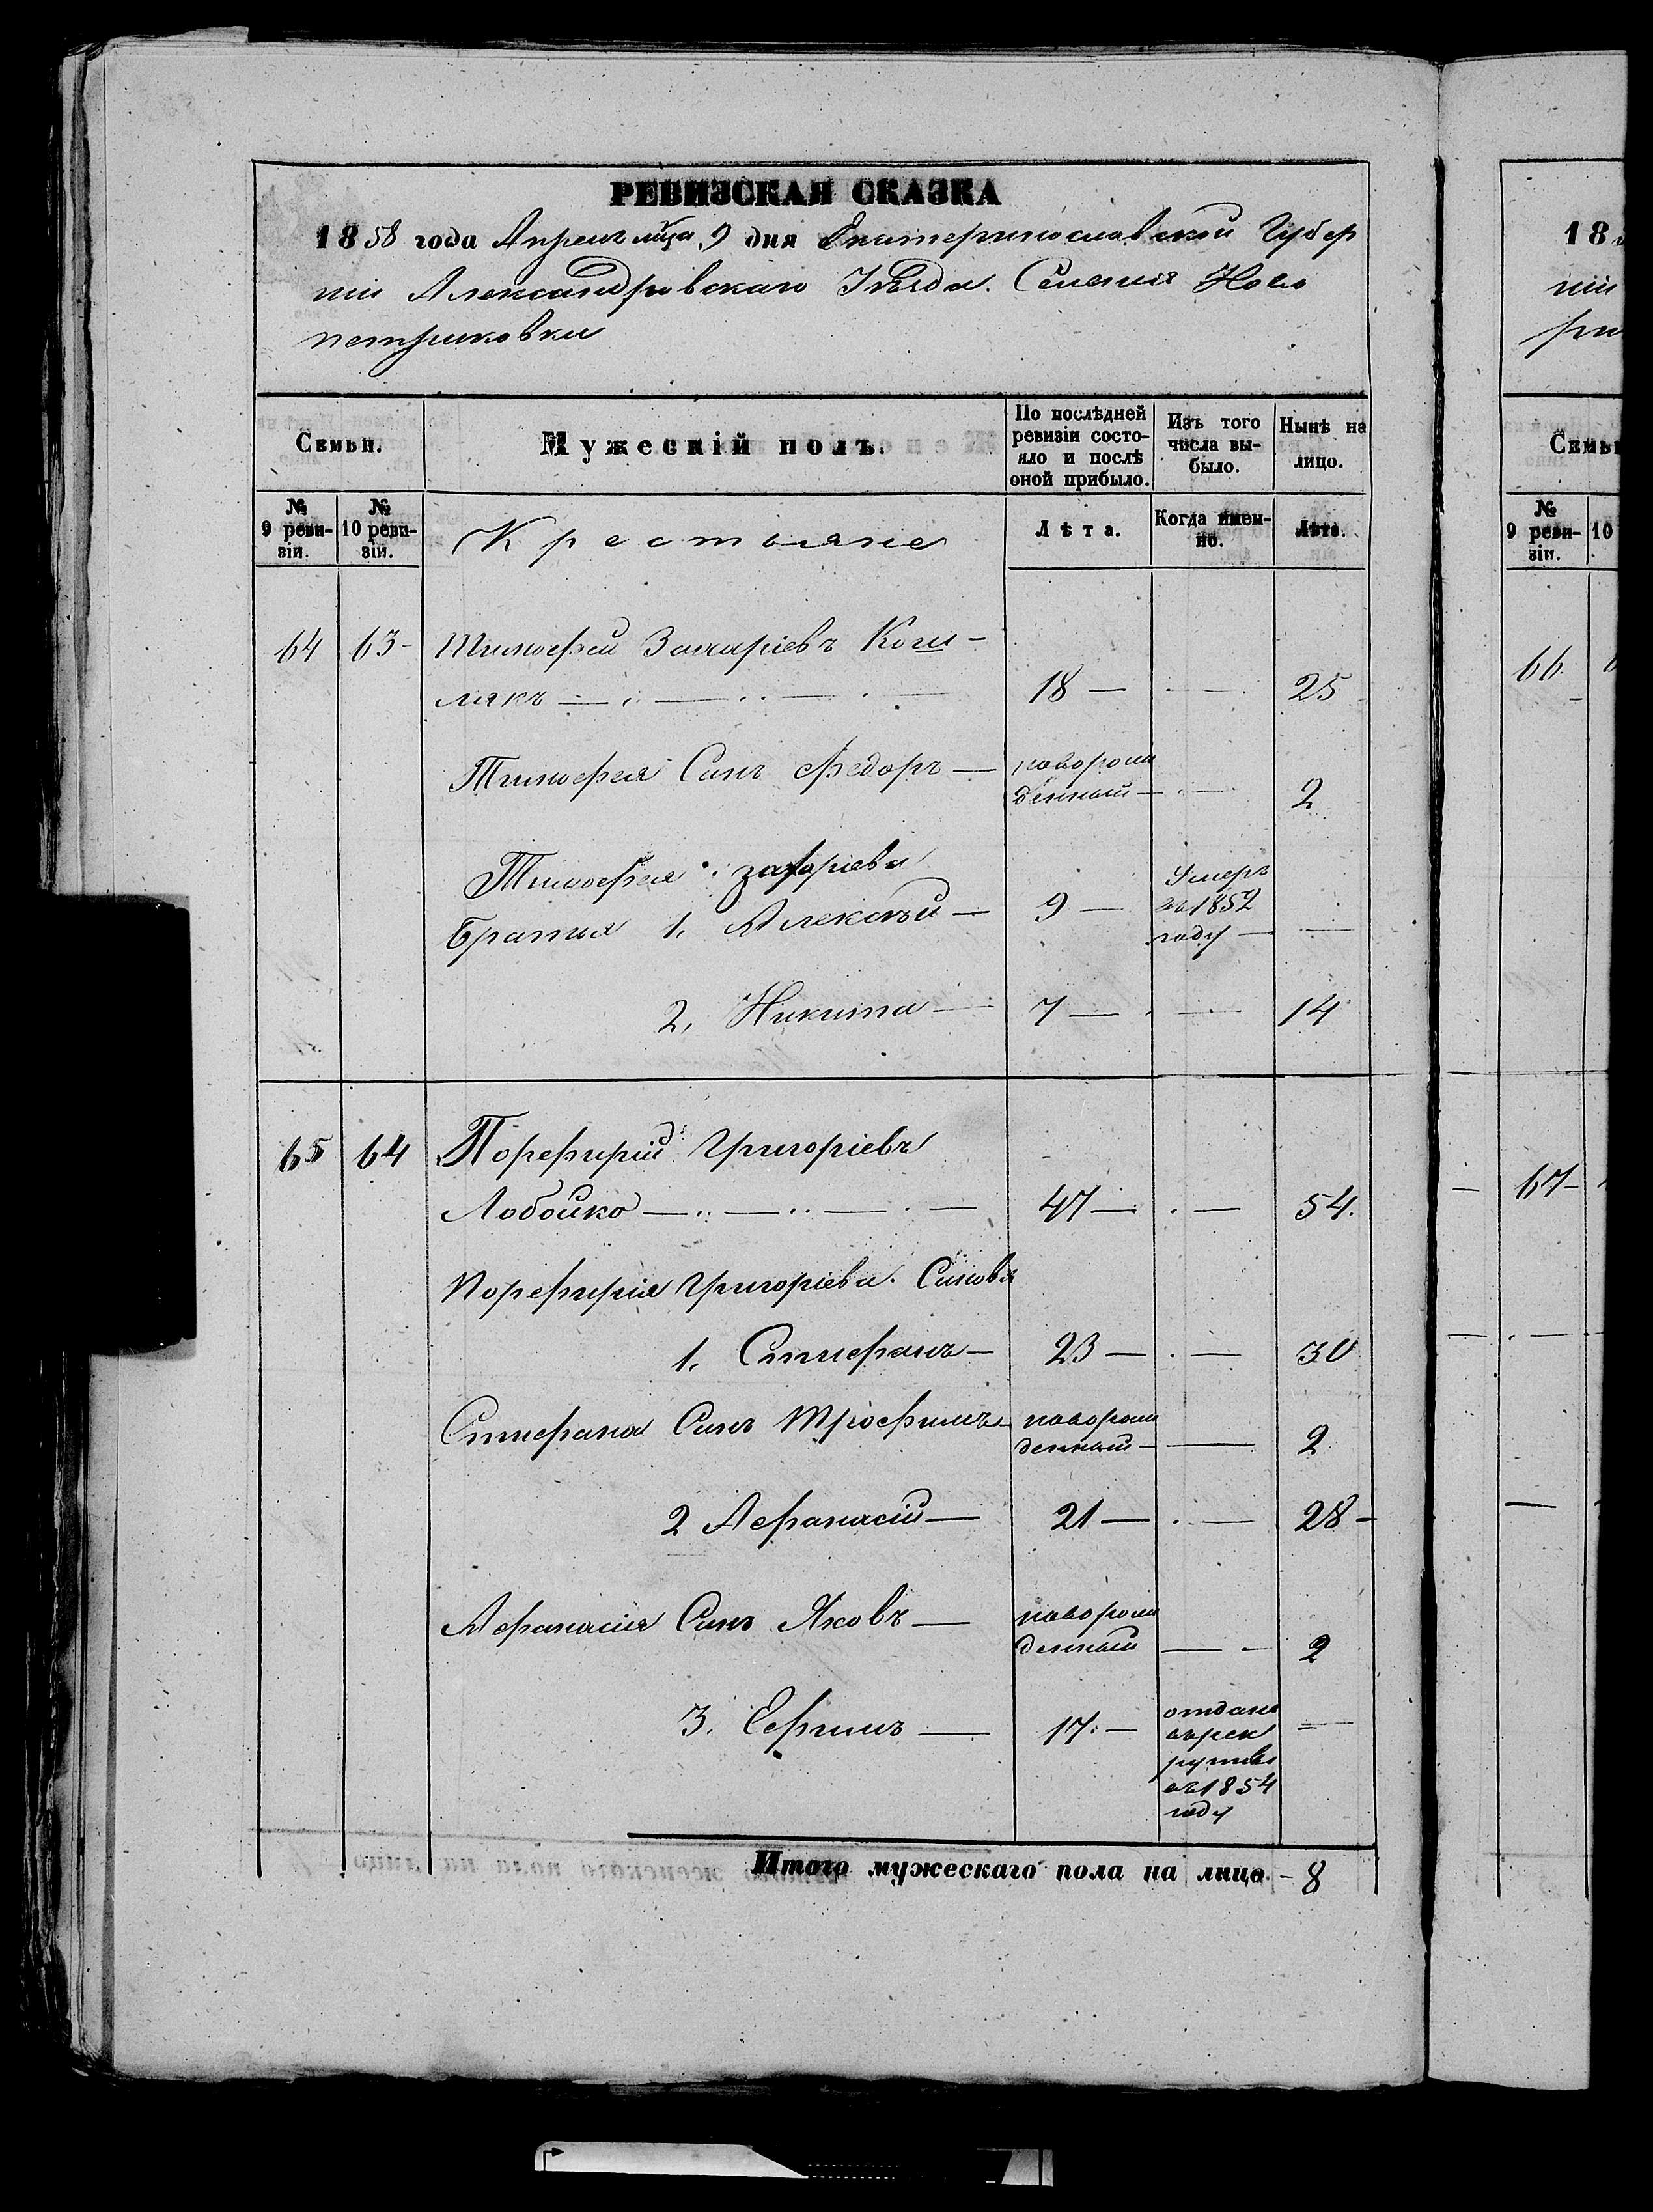 РЕВИЗСКАЯ СКАЗКА
1858 года Апрель мца 9 дня Екатеринославской Губер
ніи Александровскаго Уѣзда. Селенія Ново
петриковки
Семьи.
Мужескій полъ.
По послѣдней ревизіи состояло и послѣ оной прибыло.
Изъ того числа выбыло.
Нынѣ на лицо.
№ 9 ревизіи.
№ 10 ревизіи.
Крестьяне
Лѣта.
Когда именно.
Лѣта.
64 63 Тимофей Захаріевъ Коши-
лякъ 18 — — 25
Тимофея Синъ Федоръ — новорож
денный — — 2
Тимофея захаріева
Братья 1. Алексѣй — 9 — Умеръ въ 1852 году — —
2. Никита — 7 — — 14
65 64 Порефирій Григоріевъ
Лобойко — 47 — — 54.
Порефирія Григоріева. Синовя
1. Стиефанъ — 23 — — 30
Стиефана Синъ Трофимъ — новорож
денный — — 2
2 Афанасій — 21 — — 28 —
Афанасія Синъ Яковъ — новорож
денный — — 2
3. Ефимъ — 17 — отданъ
въ рек
руты
въ 1854
году
—
Итого мужескаго пола на лицо. — 8
18
ніи
Семьи
№ 9 ревизіи.
10
66
67